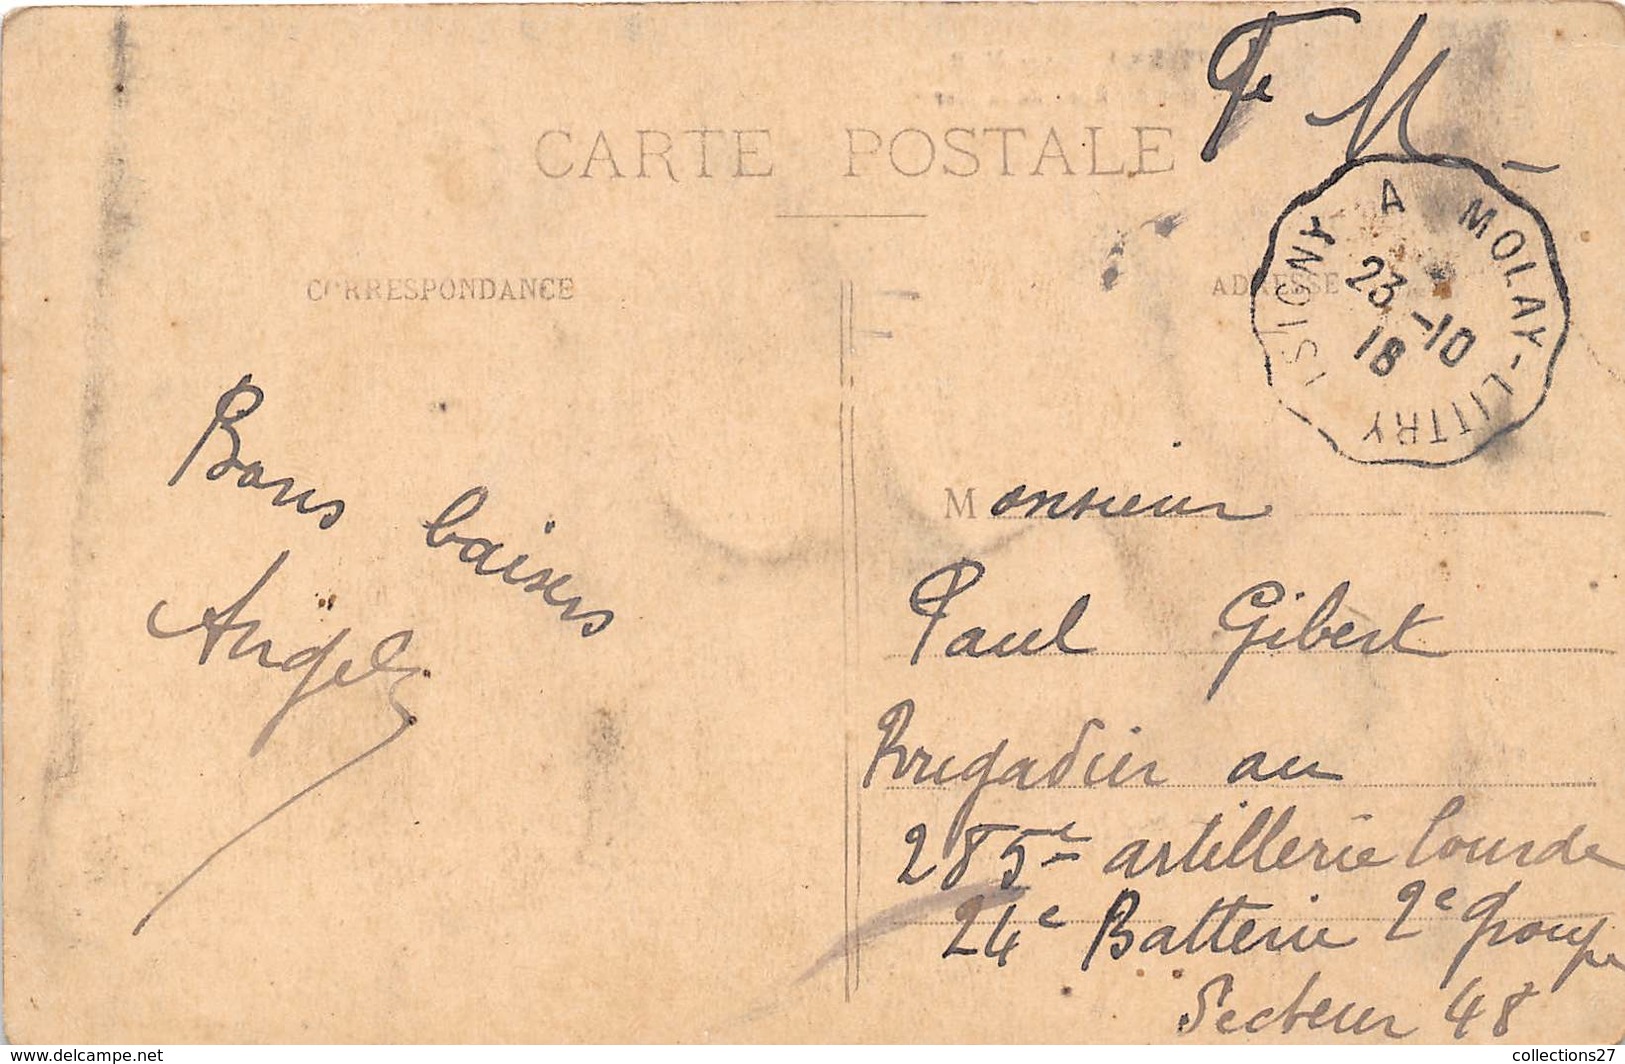 F M
CARTE POSTALE
CORRESPONDANCE
ADRESSE
ISIGNY A MOLAY-LITTRY
23-10
18
Bons baisers
Angel
Monsieur
Paul Gibert
Brigadier au
285e artillerie lourde
24e Batterie 2e groupe
Secteur 48
collections27